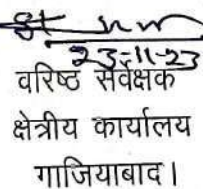 23-11-23
वरिष्ठ सर्वेक्षक
क्षेत्रीय कार्यालय
गाजियाबाद।